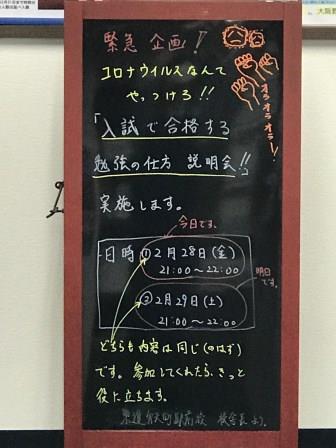 緊急 企画!
コロナウイルスなんて
やっつけろ!!
オラオラオラー!
「入試で合格する
勉強の仕方 説明会!!」
実施します。
今日です。
日時 ① 2月28日(金)
21:00〜22:00
明日です。
② 2月29日(土)
21:00〜22:00
どちらも内容は同じ(のはず)
です。参加してくれたら、きっと
役に立ちます。
校舎長より。